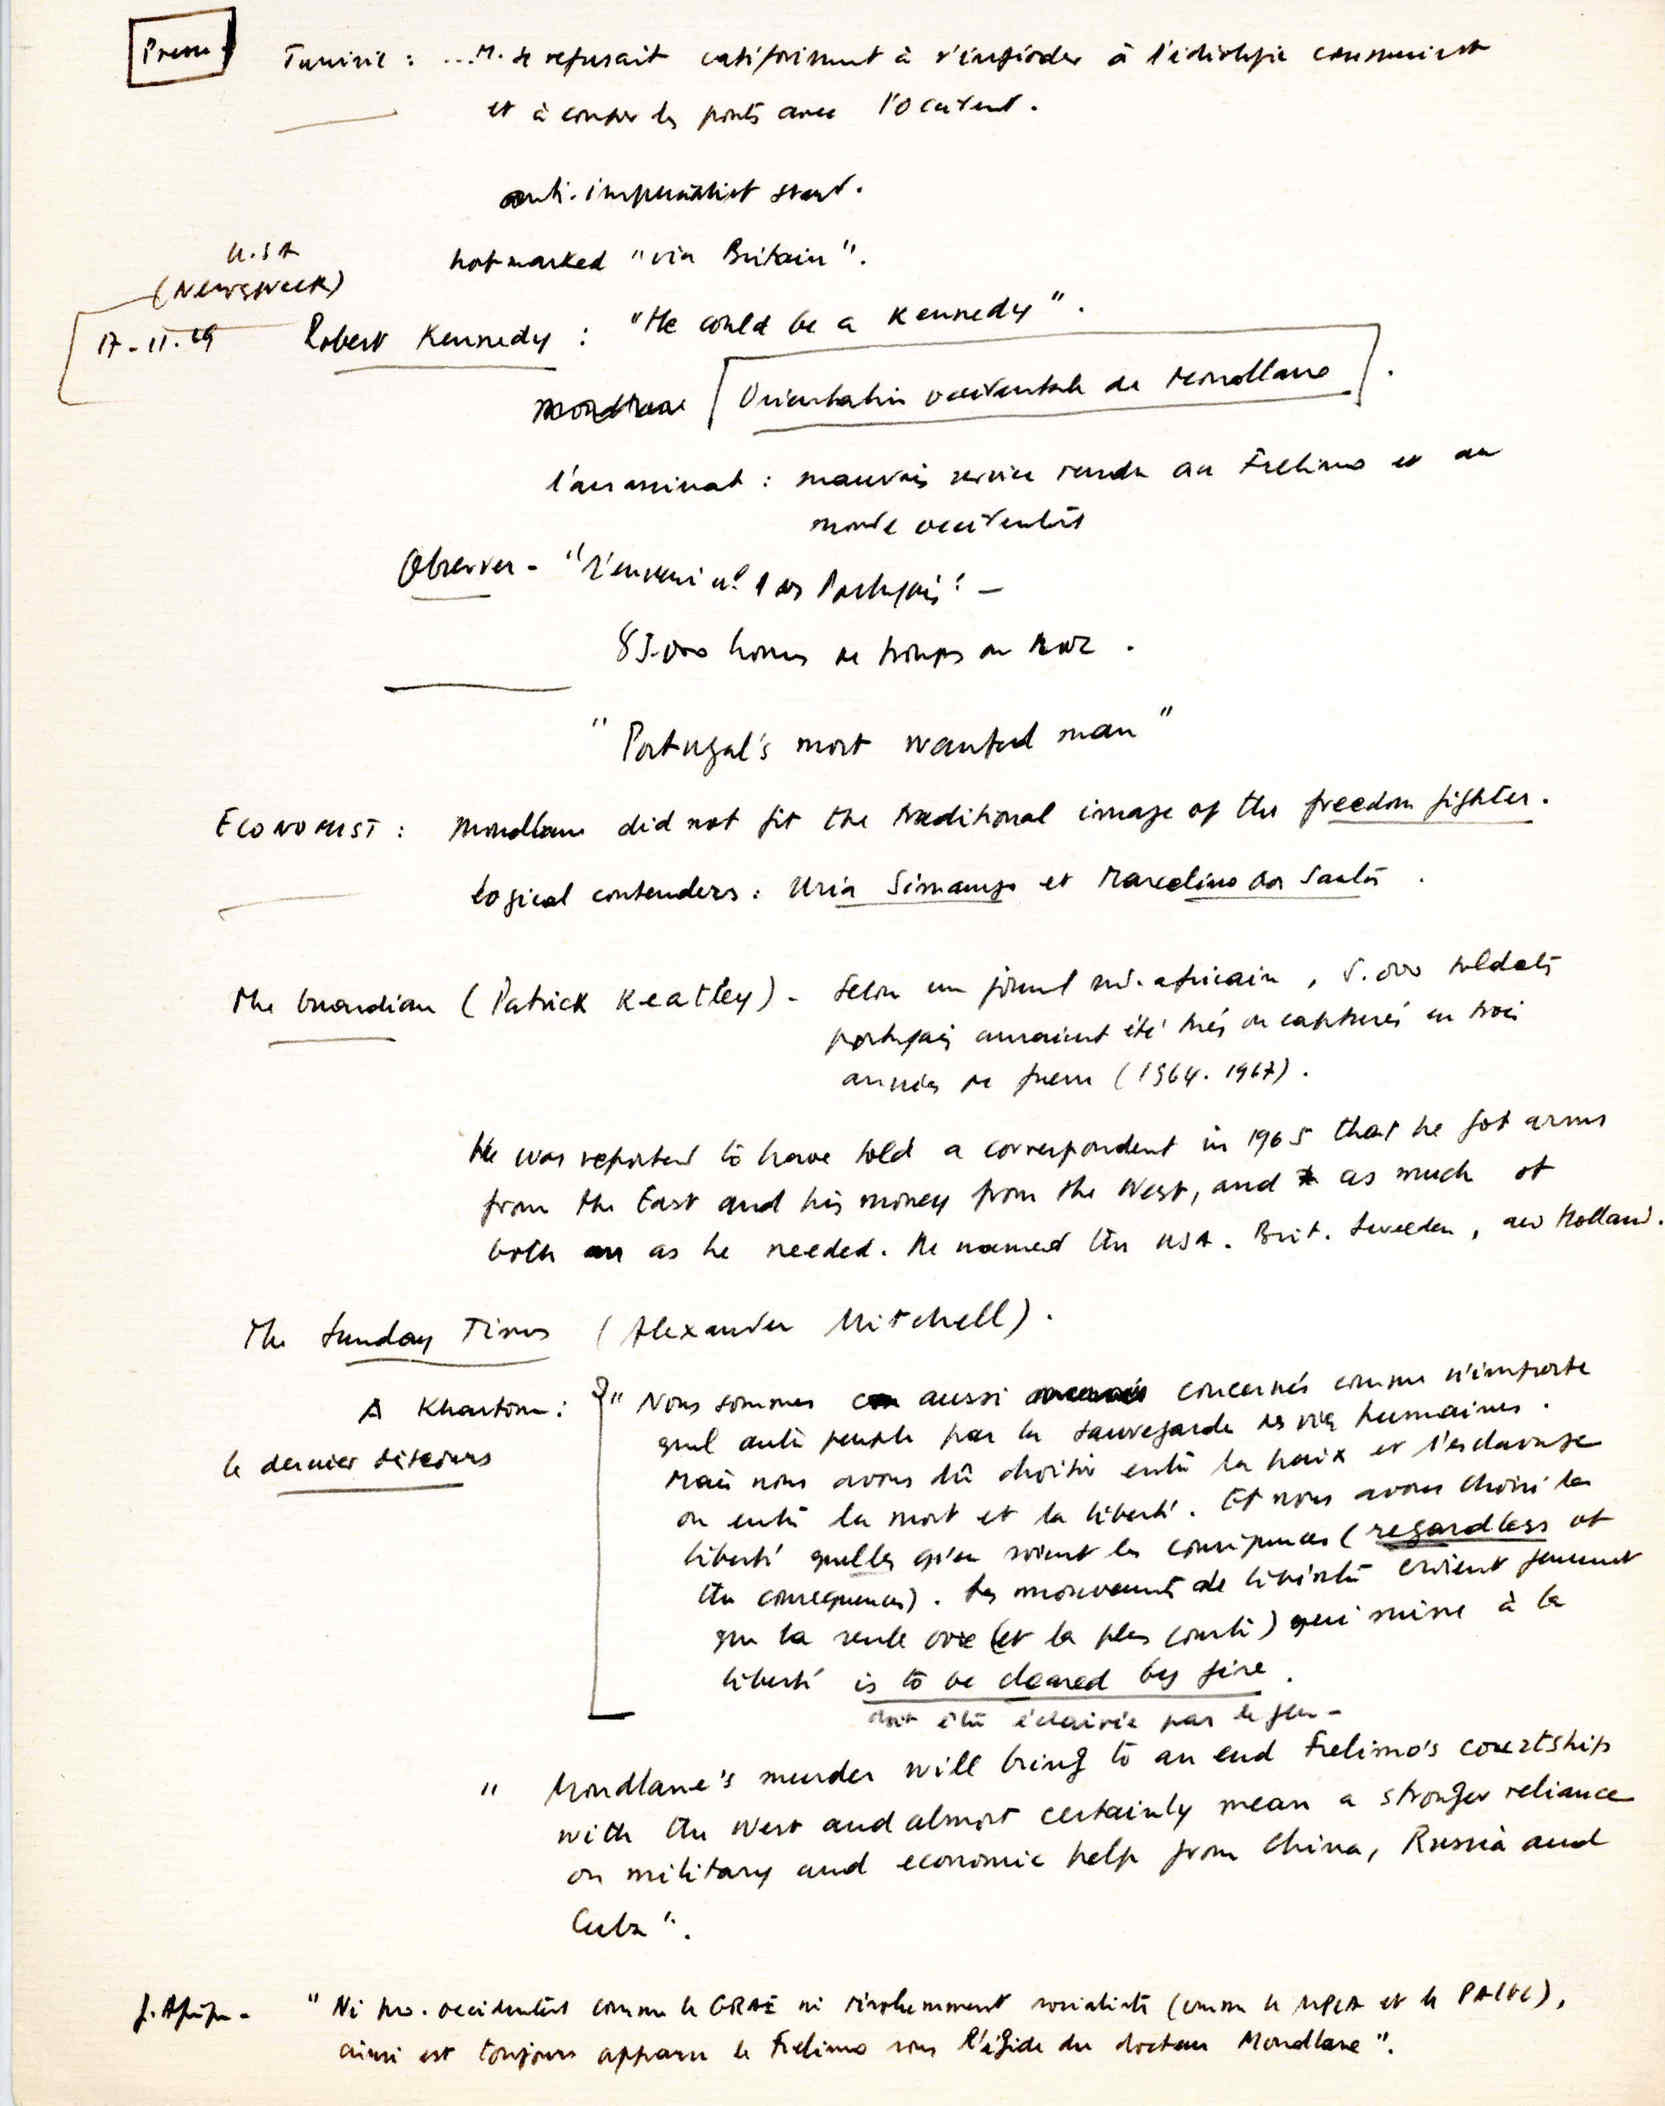 Presse
Tunisie : ... M. se refusait catégoriquement à s'inféoder à l'idéologie communiste
et à couper les ponts avec l'Occident.
anti-imperialist stand.
not marked "via Britain".
U.S.A
(Newsweek)
17-11-69 Robert Kennedy : "He could be a Kennedy".
Mondlane [Orientation occidentale de Mondlane].
l'assassinat : mauvais service rendu au Frelimo et au
monde occidental
Observer - "L'ennemi nº 1 des Portugais" -
hommes de troupes au Moz.
"Portugal's most wanted man"
ECONOMIST : Mondlane did not fit the traditional image of the freedom fighter.
Logical contenders : Uria Simango et Marcelino dos Santos.
The Guardian (Patrick Keatley) - Selon un journal sud-africain, 5.000 soldats
portugais auraient été tués ou capturés en trois
années de guerre (1964-1967).
He was reported to have told a correspondent in 1965 that he got arms
from the East and his money from the West, and as much of
both as he needed. He named the USA. Brit. Sweeden, and Holland.
The Sunday Times (Alexander Mitchell).
A Khartoum : "Nous sommes aussi concernés comme n'importe
le dernier discours
quel autre peuple par la sauvegarde des vies humaines.
Mais nous avons dû choisir entre la paix et l'esclavage
ou entre la mort et la liberté. Et nous avons choisi la
liberté quelles qu'en soient les conséquences (regardless of
the consequences). Les mouvements de libération croient fermement
que la seule voie (et la plus courte) qui mène à la
liberté is to be cleared by fire.
doit être éclairée par le feu -
"Mondlane's murder will bring to an end Frelimo's courtship
with the West and almost certainly mean a stronger reliance
on military and economic help from China, Russia and
Cuba".
J. Afrique - "Ni pro-occidental comme le GRAE ni résolument socialiste (comme le MPLA et le PAIGC),
ainsi est toujours apparu le Frelimo sous l'égide du docteur Mondlane".